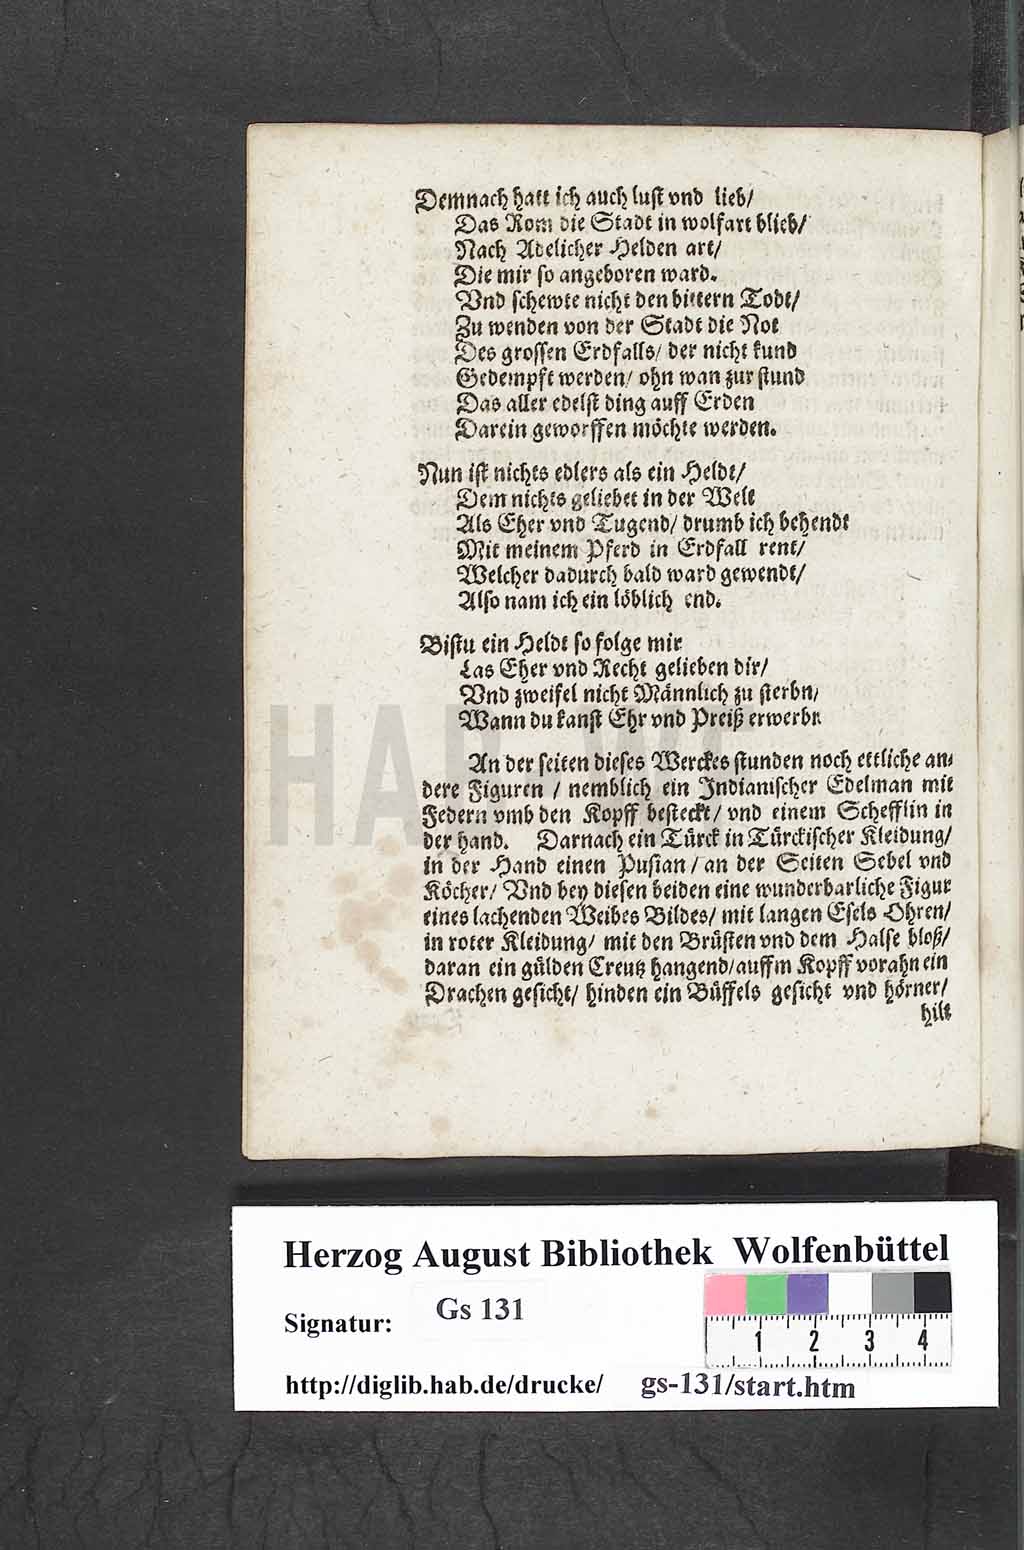 Demnach hatt ich auch lust vnd lieb/
Das Rom die Stadt in wolfart blieb/
Nach Adelicher Helden art/
Die mir so angeboren ward.
Vnd schewte nicht den bittern Todt/
Zu wenden von der Stadt die Not
Des grossen Erdfalls/ der nicht kund
Gedempft werden/ ohn wan zur stund
Das aller edelst ding auff Erden
Darein geworffen möchte werden.
Nun ist nichts edlers als ein Heldt/
Dem nichts geliebet in der Welt
Als Eher vnd Tugend/ drumb ich behendt
Mit meinem Pferd in Erdfall rent/
Welcher dadurch bald ward gewendt/
Also nam ich ein löblich end.
Bistu ein Heldt so folge mir
Las Eher vnd Recht gelieben dir/
Vnd zweifel nicht Männlich zu sterbn/
Wann du kanst Ehr vnd Preiß erwerbn
An der seiten dieses Werckes stunden noch ettliche an-
dere Figuren / nemblich ein Indianischer Edelman mit
Federn vmb den Kopff besteckt/ vnd einem Schefflin in
der hand. Darnach ein Türck in Türckischer Kleidung/
in der Hand einen Pusian / an der Seiten Sebel vnd
Köcher/ Vnd bey diesen beiden eine wunderbarliche Figur
eines lachenden Weibes Bildes/ mit langen Esels Ohren/
in roter Kleidung/ mit den Brüsten vnd dem Halse bloß/
daran ein gülden Creutz hangend/ auffm Kopff vorahn ein
Drachen gesicht/ hinden ein Büffels gesicht vnd hörner/
hilt
HAB
Herzog August Bibliothek Wolfenbüttel
Signatur: Gs 131
1 2 3 4
http://diglib.hab.de/drucke/ gs-131/start.htm